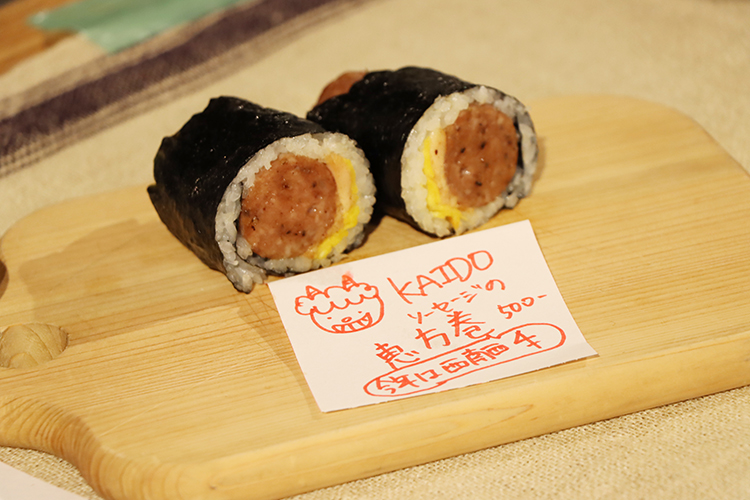 KAIDO
ソーセージの
恵方巻
500-
今年は西南西